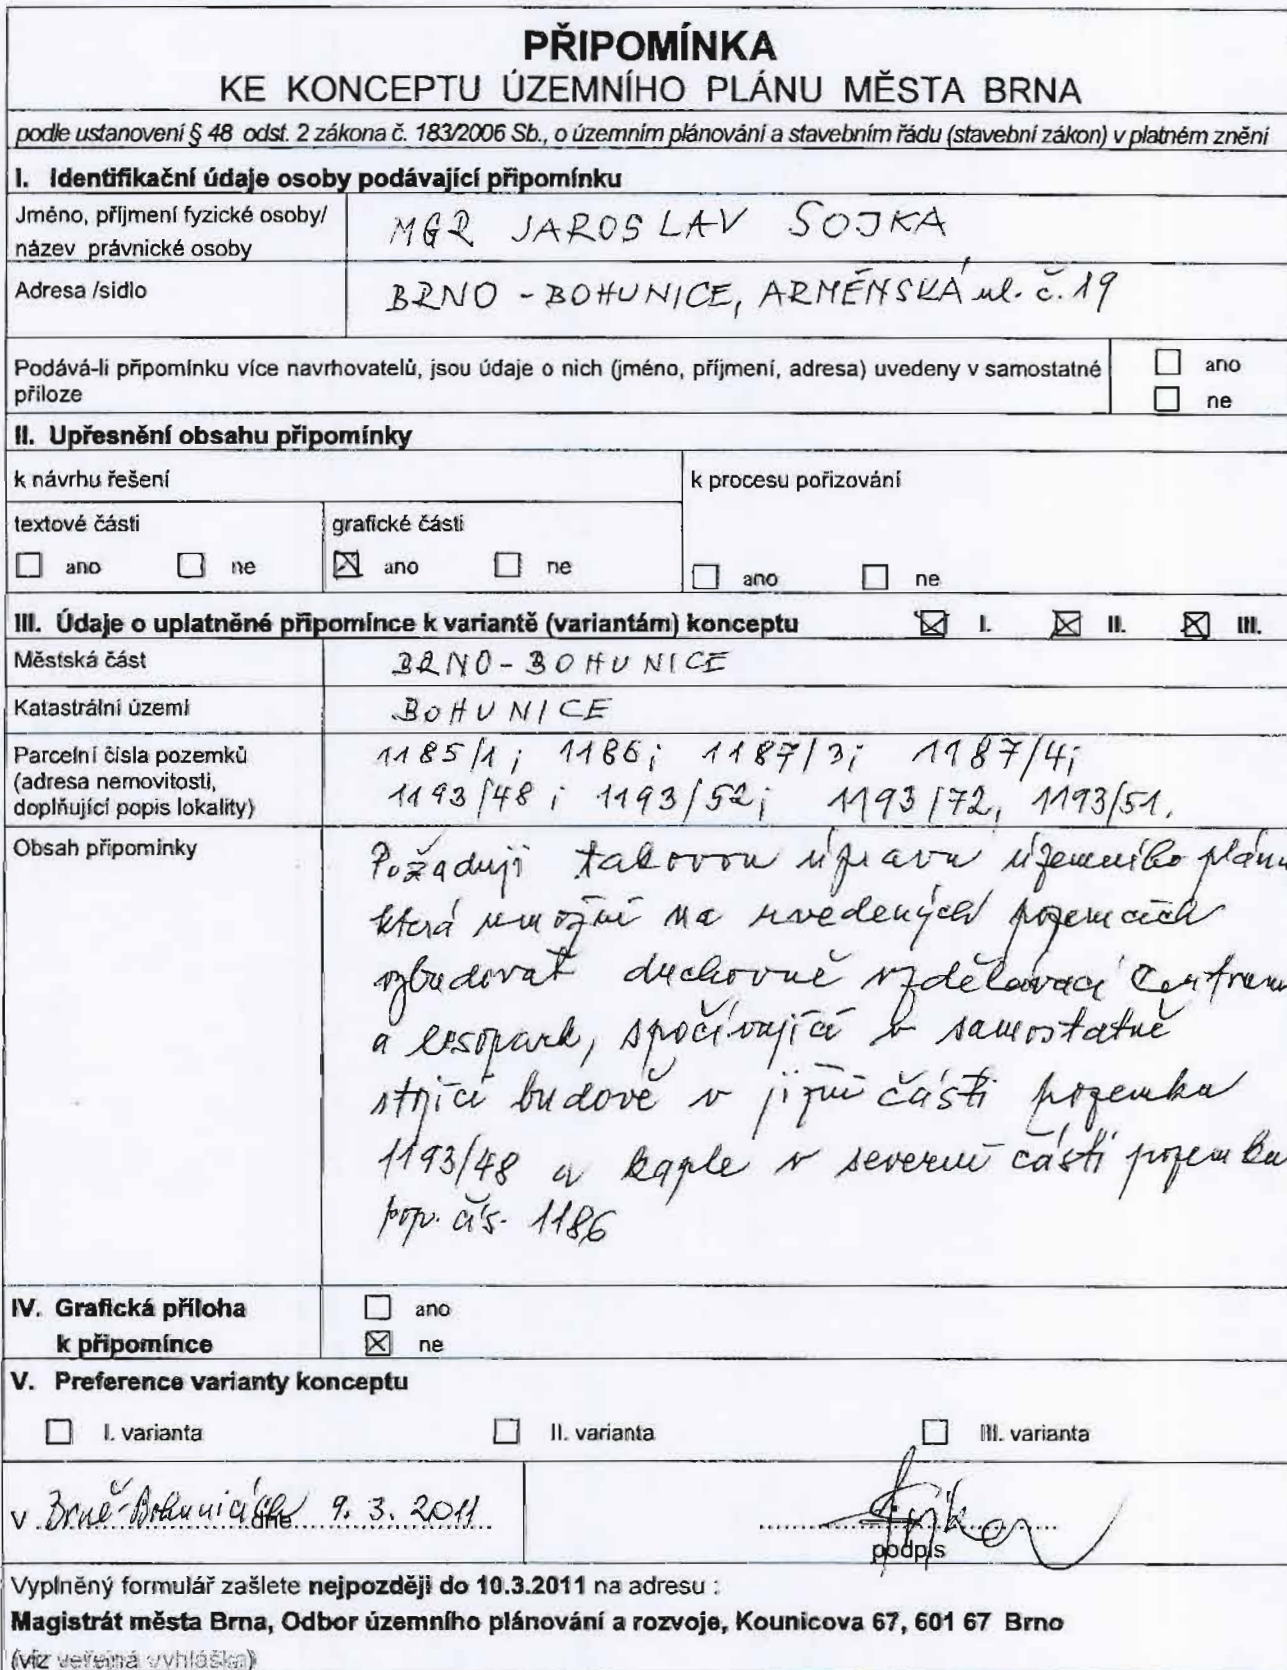 PŘIPOMÍNKA
KE KONCEPTU ÚZEMNÍHO PLÁNU MĚSTA BRNA
podle ustanovení § 48 odst. 2 zákona č. 183/2006 Sb., o územním plánování a stavebním řádu (stavební zákon) v platném znění
I. Identifikační údaje osoby podávající připomínku
Jméno, příjmení fyzické osoby/
název právnické osoby
MGR JAROSLAV SOJKA
Adresa /sídlo
BRNO - BOHUNICE, ARMÉNSKÁ ul. č. 19
Podává-li připomínku více navrhovatelů, jsou údaje o nich (jméno, příjmení, adresa) uvedeny v samostatné
příloze
ano
ne
II. Upřesnění obsahu připomínky
k návrhu řešení
k procesu pořizování
textové části
grafické části
ano ne ano ne ano ne
III. Údaje o uplatněné připomínce k variantě (variantám) konceptu I. II. III.
Městská část
BRNO - BOHUNICE
Katastrální území
BOHUNICE
Parcelní čísla pozemků
(adresa nemovitosti,
doplňující popis lokality)
1185/1; 1186; 1187/3; 1187/4;
1193/48; 1193/52; 1193/72, 1193/51.
Obsah připomínky
Požaduji takovou úpravu územního plánu
která umožní na uvedených pozemcích
vybudovat duchovně vzdělávací centrum
a lesopark, spočívající v samostatně
stojící budově v jižní části pozemku
1193/48 a kaple v severní části pozemku
pop. čís. 1186
IV. Grafická příloha
k připomínce
ano
ne
V. Preference varianty konceptu
I. varianta II. varianta III. varianta
v Brně-Bohunicích dne 9. 3. 2011
podpis
Vyplněný formulář zašlete nejpozději do 10.3.2011 na adresu :
Magistrát města Brna, Odbor územního plánování a rozvoje, Kounicova 67, 601 67 Brno
(viz veřejná vyhláška)